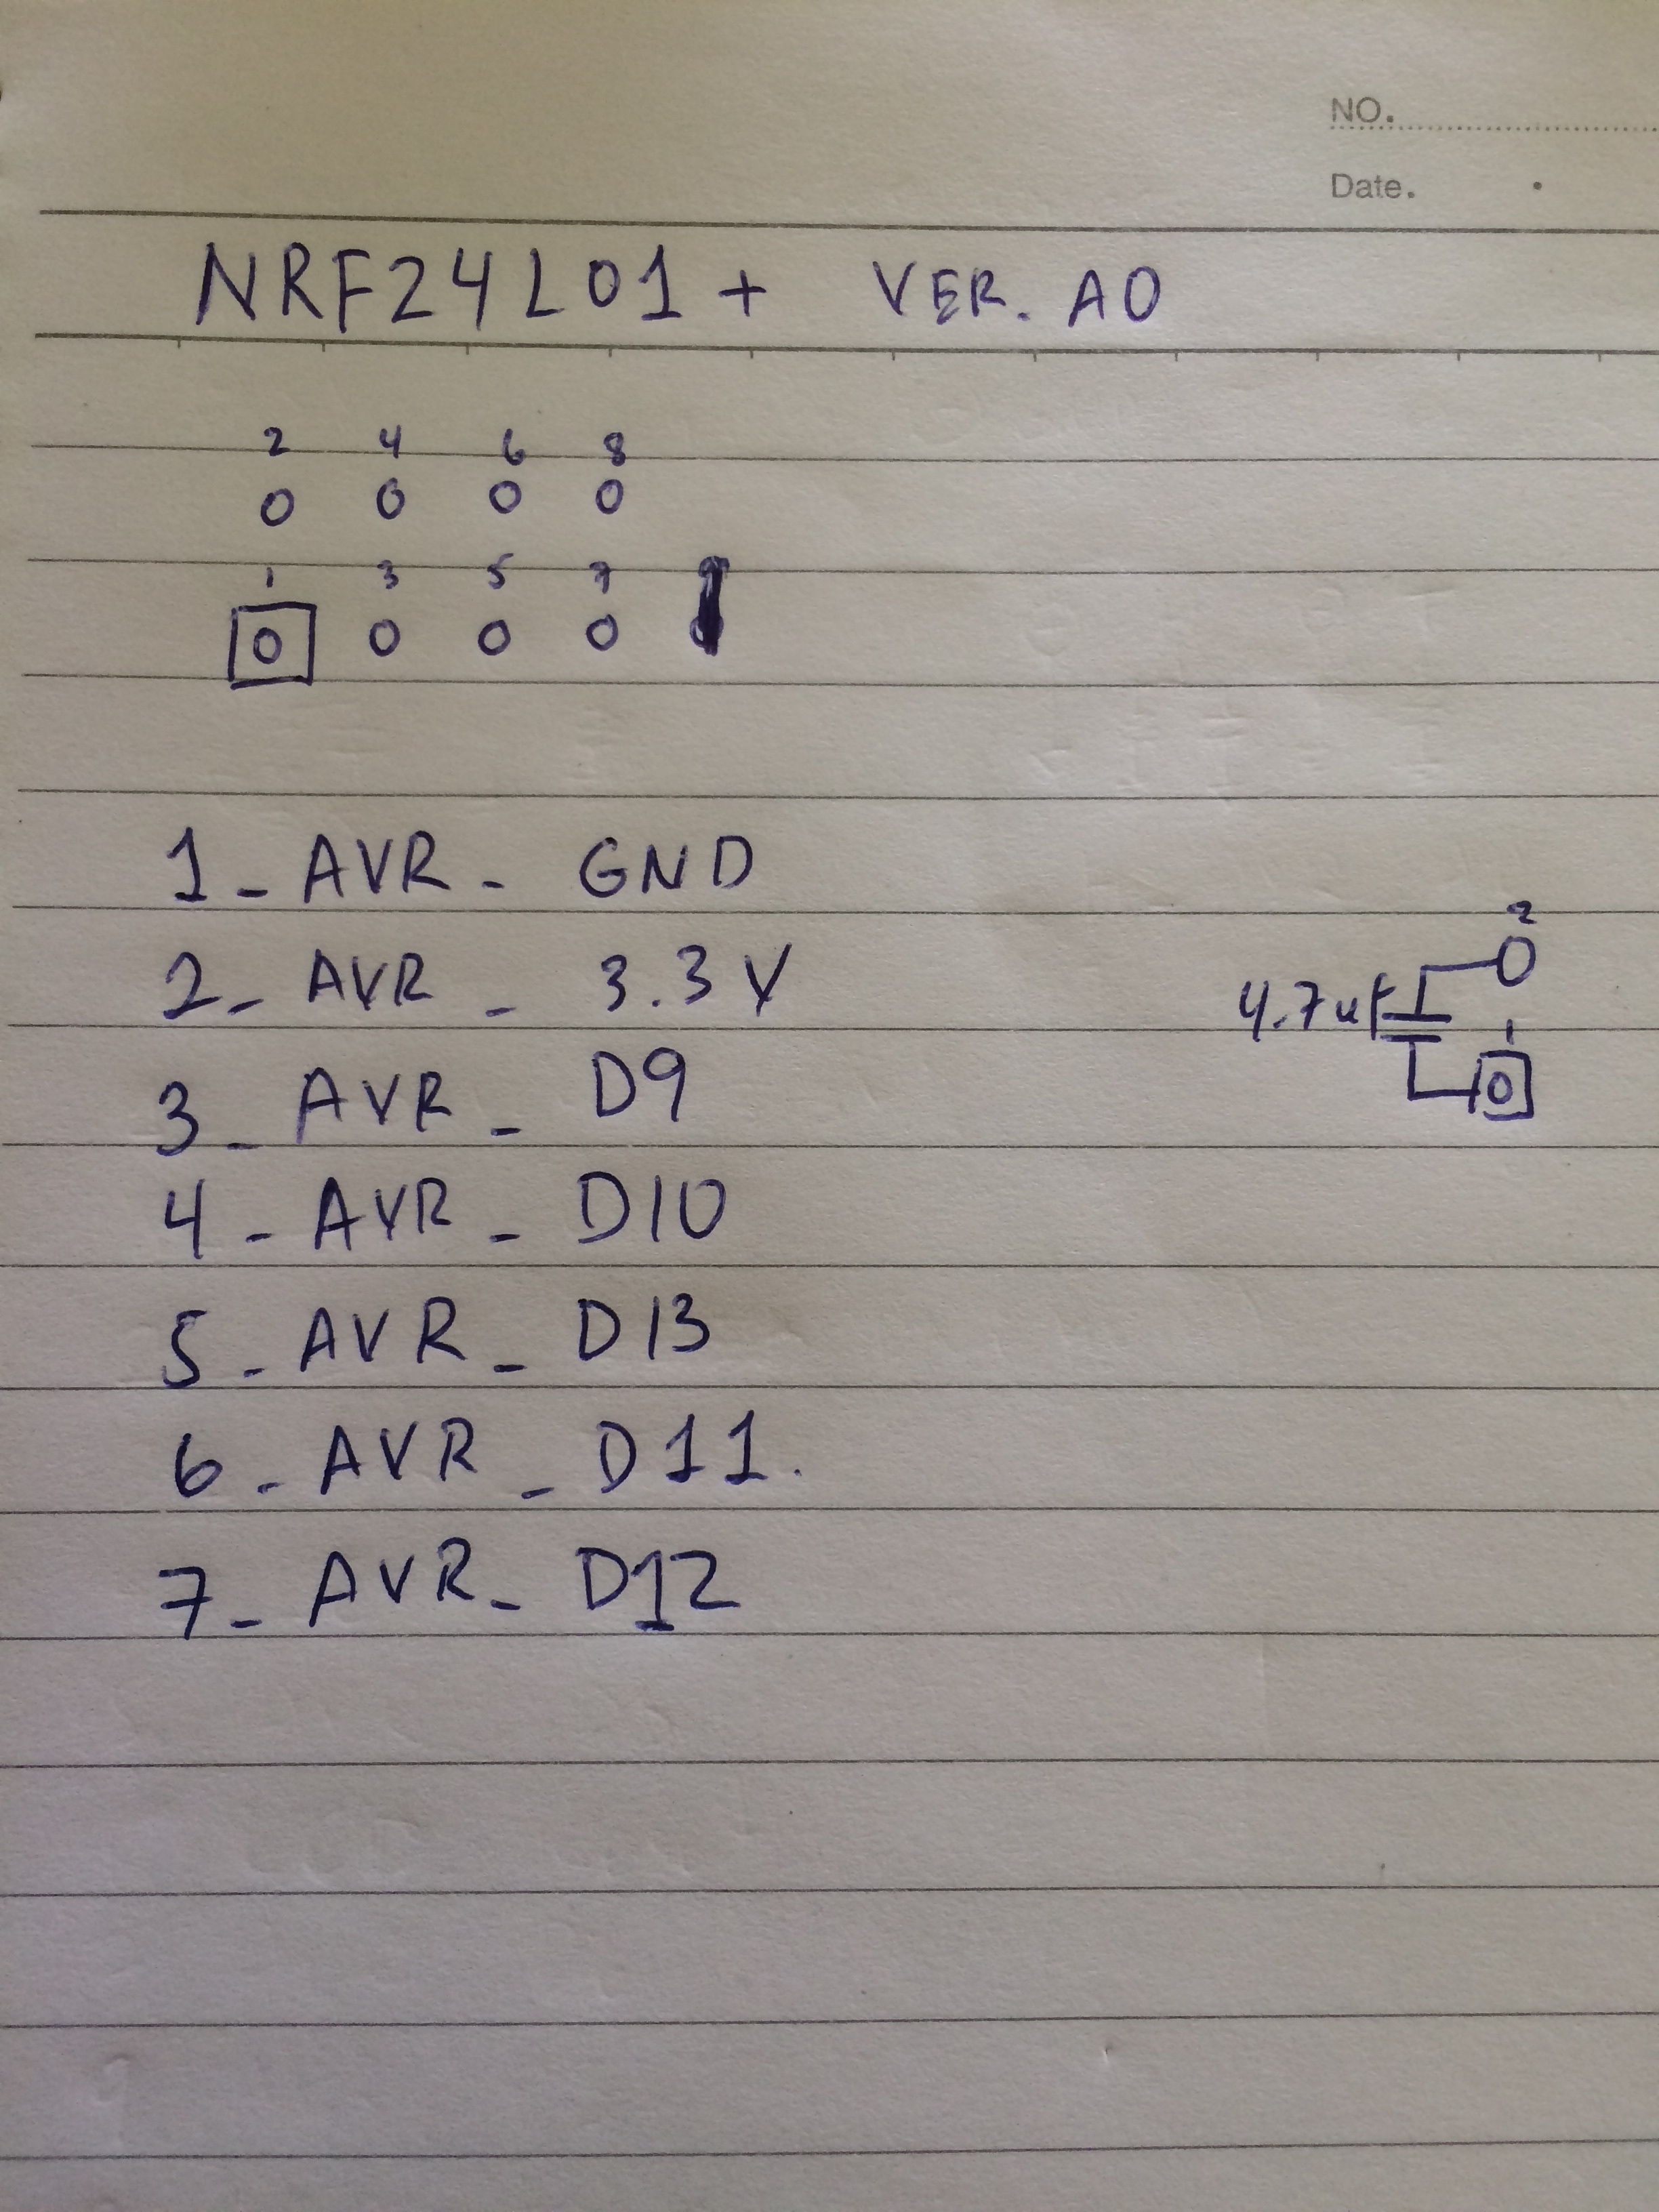 NO.
Date.
NRF24L01+ VER. A0
2 4 6 8
1 3 5 7
1 - AVR - GND
2 - AVR - 3.3V
3 - AVR - D9
4 - AVR - D10
5 - AVR - D13
6 - AVR - D11.
7 - AVR - D12
2
4.7uf
1